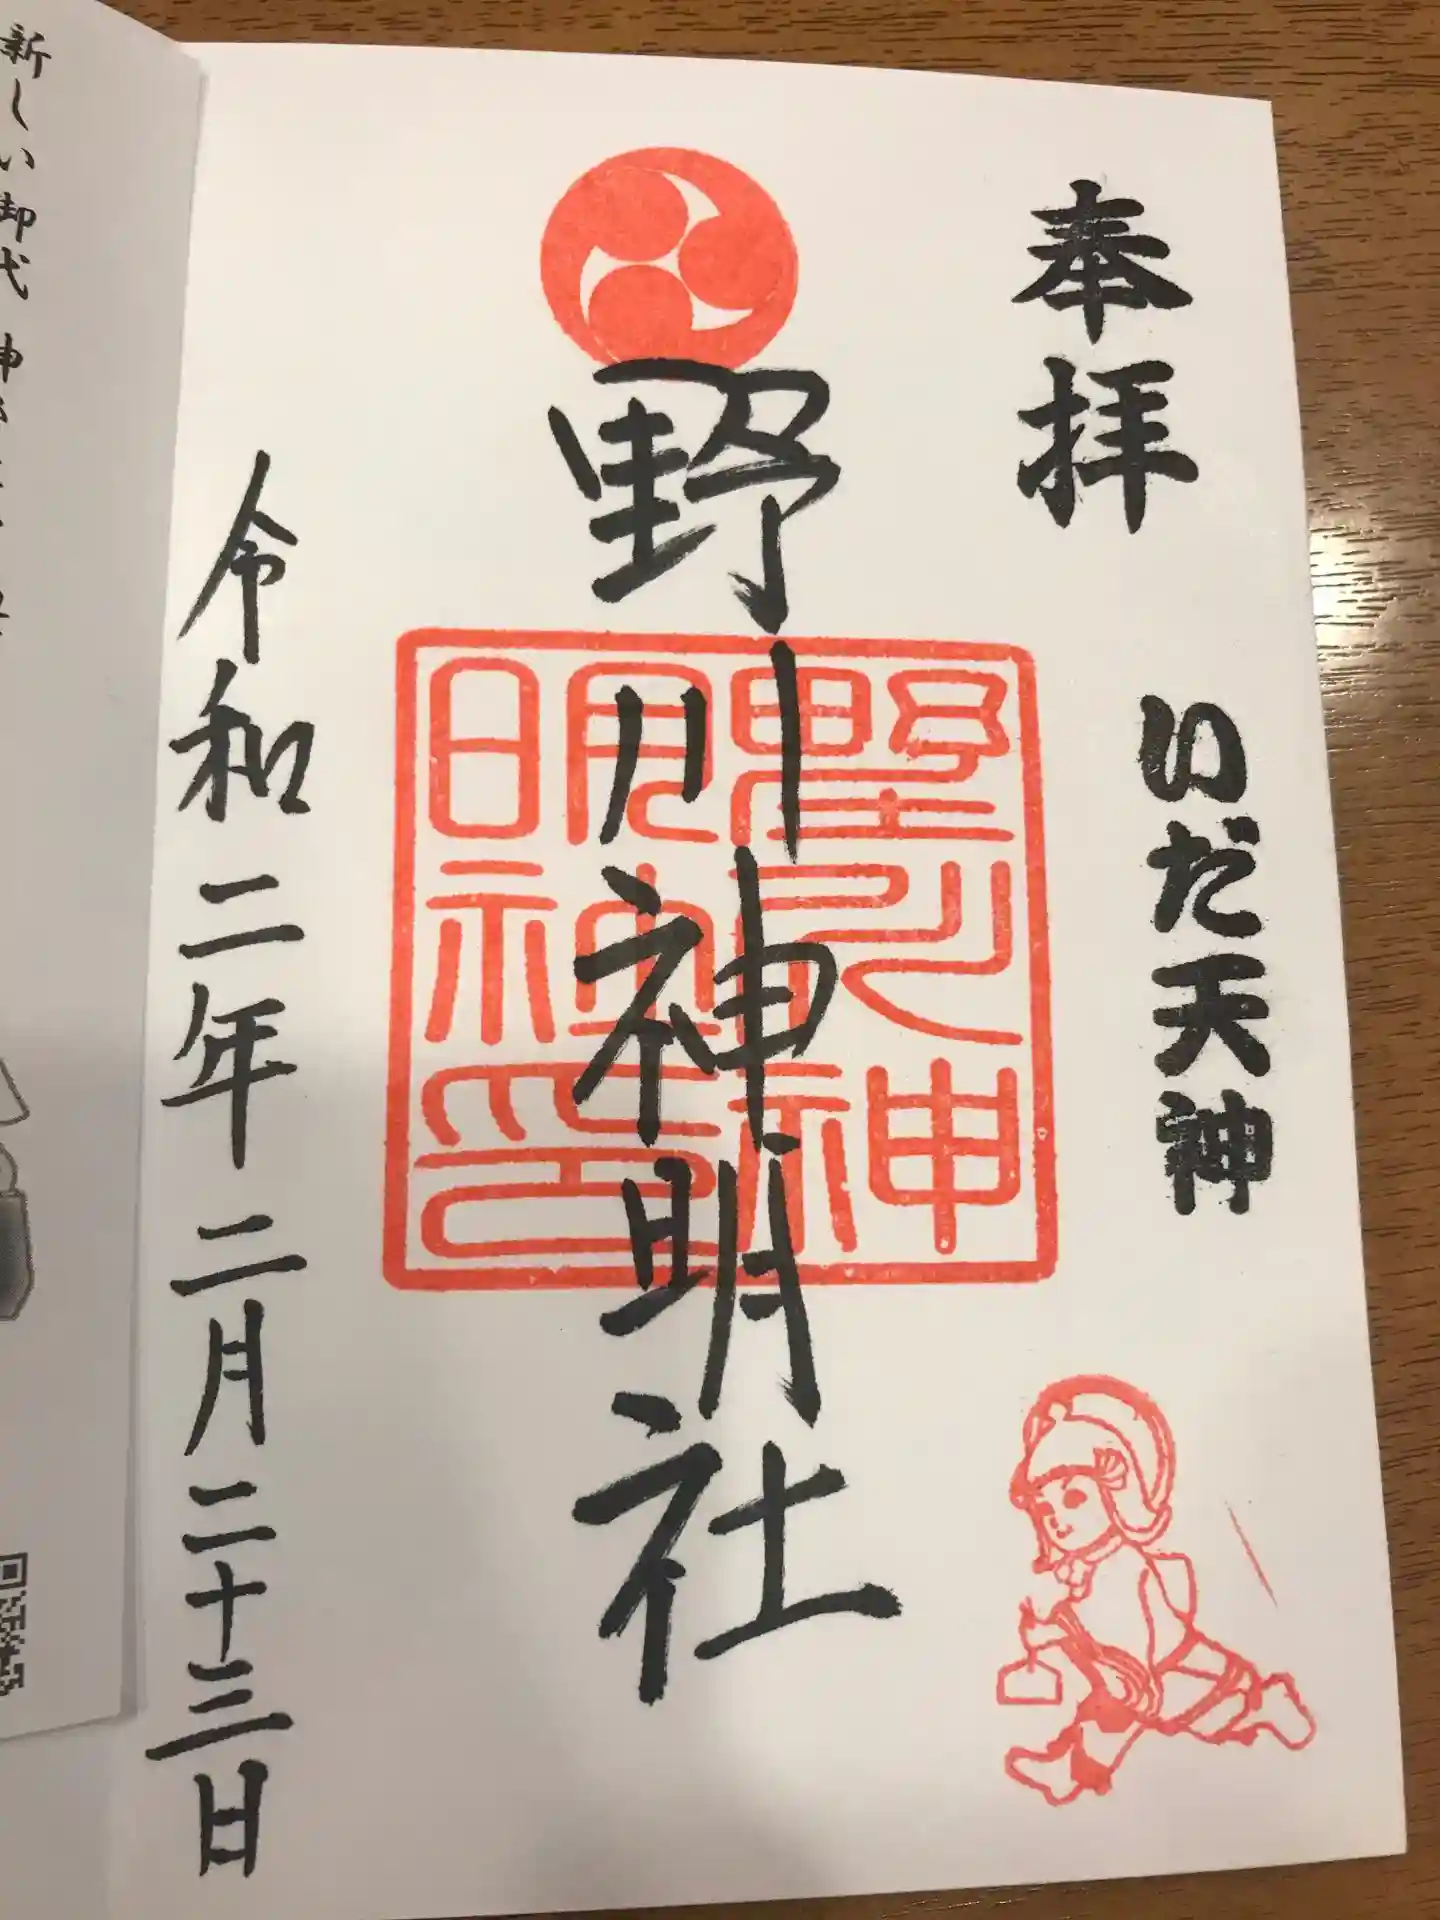 奉拝
いだ天神
野川神明社
野川神
明神社印
令和二年二月二十三日
新しい御代